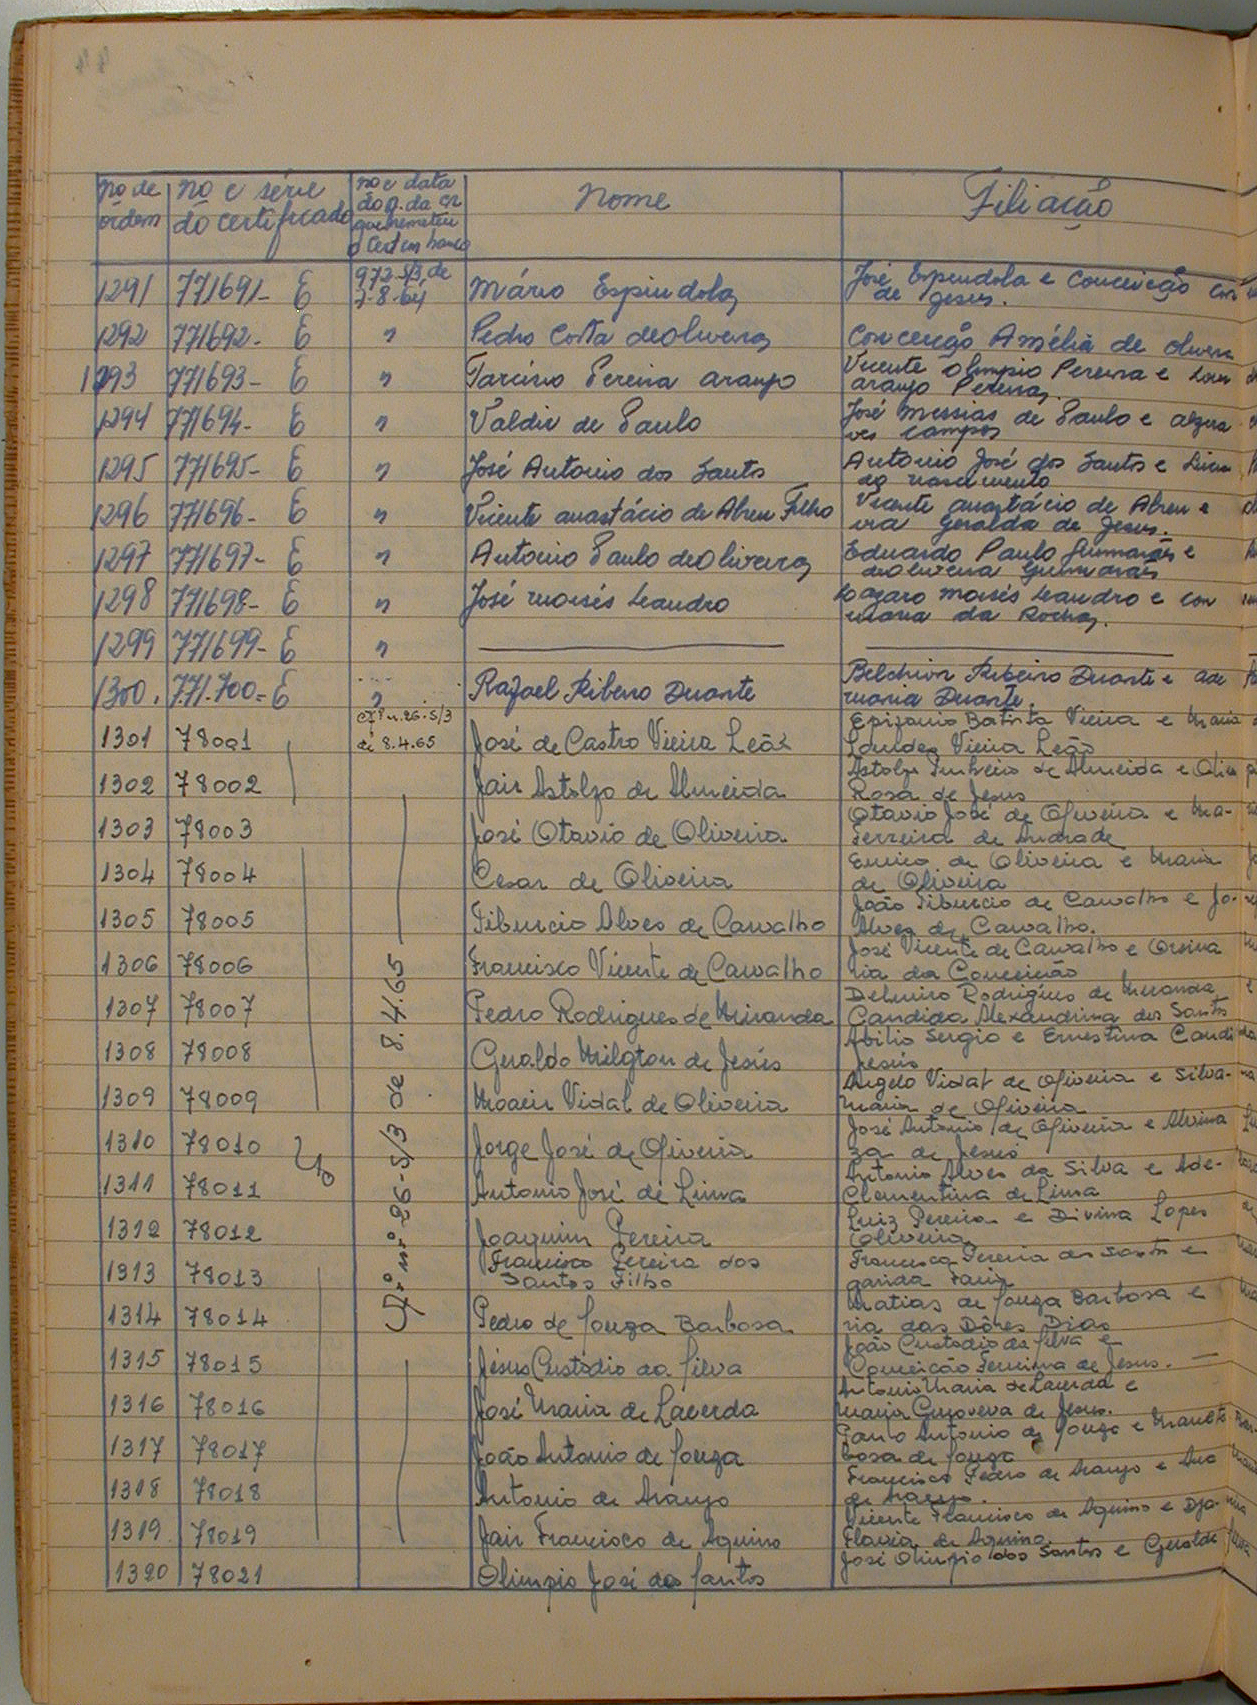 nº de ordem nº e série do certificado nº e data do q. da cr que remeteu o Cert em branco Nome Filiação
1291 771691- E 972-S/3 de 7-8-64 Mário Espindola José Espindola e Conceição
de Jesus.
1292 771692- E " Pedro Costa de Oliveira Conceição Amélia de Olivera
1293 771693- E " Tarcísio Pereira Araujo Vicente Olimpio Pereira e
Araujo Pereira.
1294 771694- E " Valdir de Paulo José Messias de Paulo e
ves Campos
1295 771695- E " José Antonio dos Santos Antonio José dos Santos e
do nascimento
1296 771696- E " Vicente anastácio de Abreu Filho Vicente anastácio de Abreu e
ria Geralda de Jesus.
1297 771697- E " Antonio Paulo de Oliveira Eduardo Paulo Guimarães e
de Oliveira Guimarães
1298 771698- E " José moisés Leandro Lazaro moisés Leandro e con
maria da Rocha.
1299 771699- E "
1300. 771.700= E " Rafael Ribeiro Duarte Belchior Ribeiro Duarte e
maria Duarte.
1301 78001 Of nº 26-S/3 de 8.4.65 José de Castro Vieira Leão Epifanio Batista Vieira e Maria
Lourdes Vieira Leão
1302 78002 Jair Astolfo de Almeida Astolfo de Almeida e
Rosa de Jesus
1303 78003 José Otavio de Oliveira Otavio José de Oliveira e Ma-
Ferreira de Andrade
1304 78004 Cesar de Oliveira Eurico de Oliveira e Maria
de Oliveira
1305 78005 Tiburcio Alves de Carvalho João Tiburcio de Carvalho e Jo-
Alves de Carvalho.
1306 78006 Francisco Vicente de Carvalho José Vicente de Carvalho e Orsina
ria da Conceição
1307 78007 Pedro Rodrigues de Miranda Delmiro Rodrigues de Miranda
Candida Alexandrina dos Santos
1308 78008 Geraldo Milgton de Jesús Abilio Sergio e Ernestina Candi
Jesús
1309 78009 Moacir Vidal de Oliveira Angelo Vidal de Oliveira e Silva-
Maria de Oliveira
1310 78010 Jorge José de Oliveira José Antonio de Oliveira e Alvina
za de Jesus
1311 78011 Antonio José de Lima Antonio Alves da Silva e Ade-
Clementina de Lima
Ofº nº 26-S/3 de 8.4.65
1312 78012 Joaquim Pereira Luiz Pereira e Divina Lopes
Oliveira
1313 78013 Francisco Pereira dos Francisco Pereira dos Santos e
Santos Filho garida Faria
1314 78014 Pedro de Souza Barbosa Matias de Souza Barbosa e
ria das Dôres Dias
1315 78015 Jésus Custódio da Silva João Custodio da Silva e
Conceição Ferreira de Jesus.
1316 78016 José Maria de Lacerda Antonio Maria de Lacerda e
Maria Genoveva de Jesus.
1317 78017 João Antonio de Souza Paulo Antonio de Souza e
bosa de Souza
1318 78018 Antonio de Araujo Francisco Pedro de Araujo e Ana
de Araujo.
1319. 78019 Jair Francisco de Aquino Vicente Francisco de Aquino e Dja-
Flavia de Aquino
1320 78021 Olimpio José dos Santos José Olimpio dos Santos e Geralda